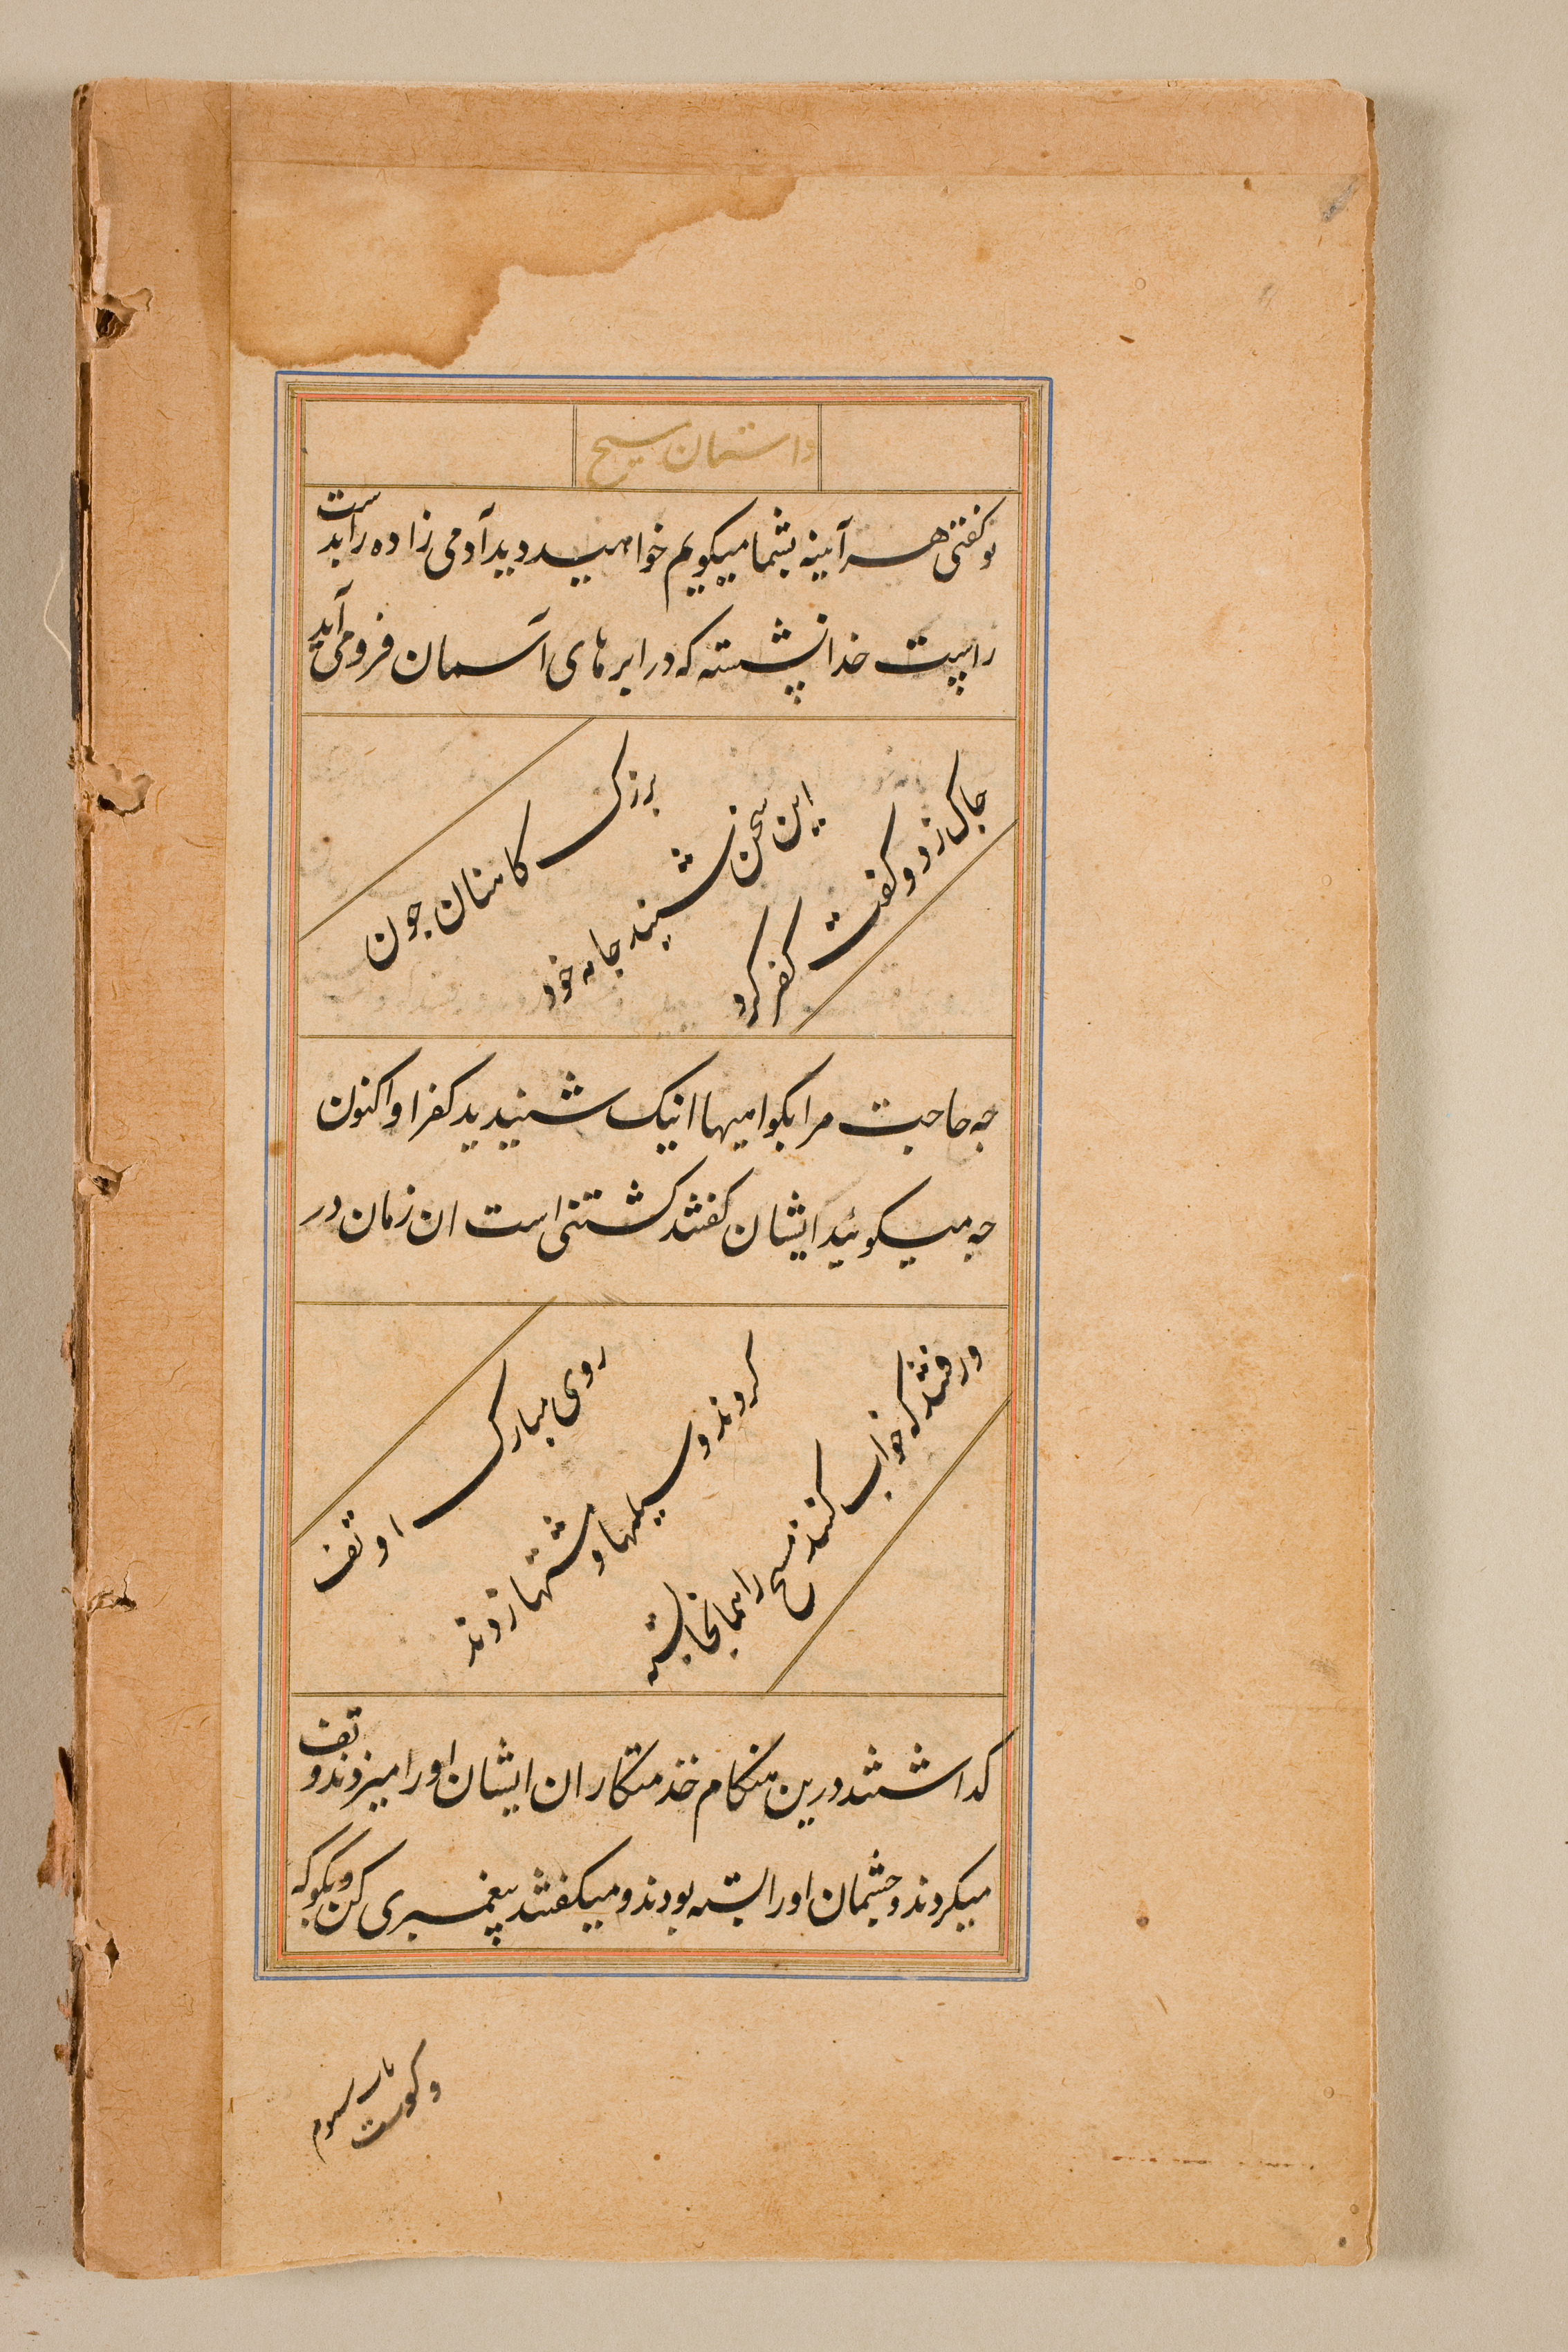 داستان مسیح
تو کفتی هر آیینه بشما میکویم خواهید دید آدمی زاده را بدست
راست خدا نشسته که در ابرهای آسمان فرو می آید
بزرک کاهنان چون
این سخن شنید جامه خود
چاک زد و کفت کفر کرد
چه حاجت مر اینک شنیدید کفر او اکنون
چه میکوئید ایشان کفتند کشتنی است ان زمان در
روی مبارک او تف
کردند و سیلیها و مشتها زدند
و رفتند که خواب کنند مسیح را همانجا بسته
کذاشتند درین هنکام خذمتکاران ایشان او را میزدند و تف
میکردند و چشمان او را بسته بودند و میکفتند پیغمبری کن و بکو که